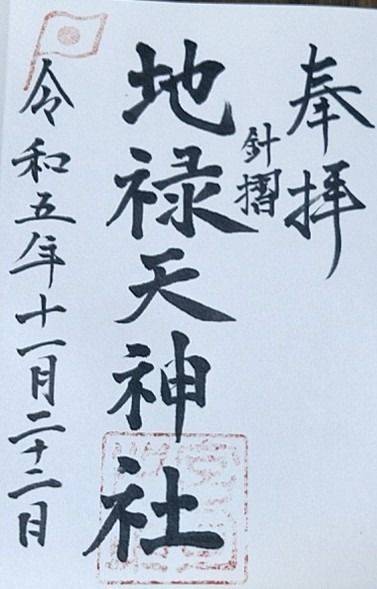 奉拝
針摺
地禄天神社
令和五年十一月二十二日